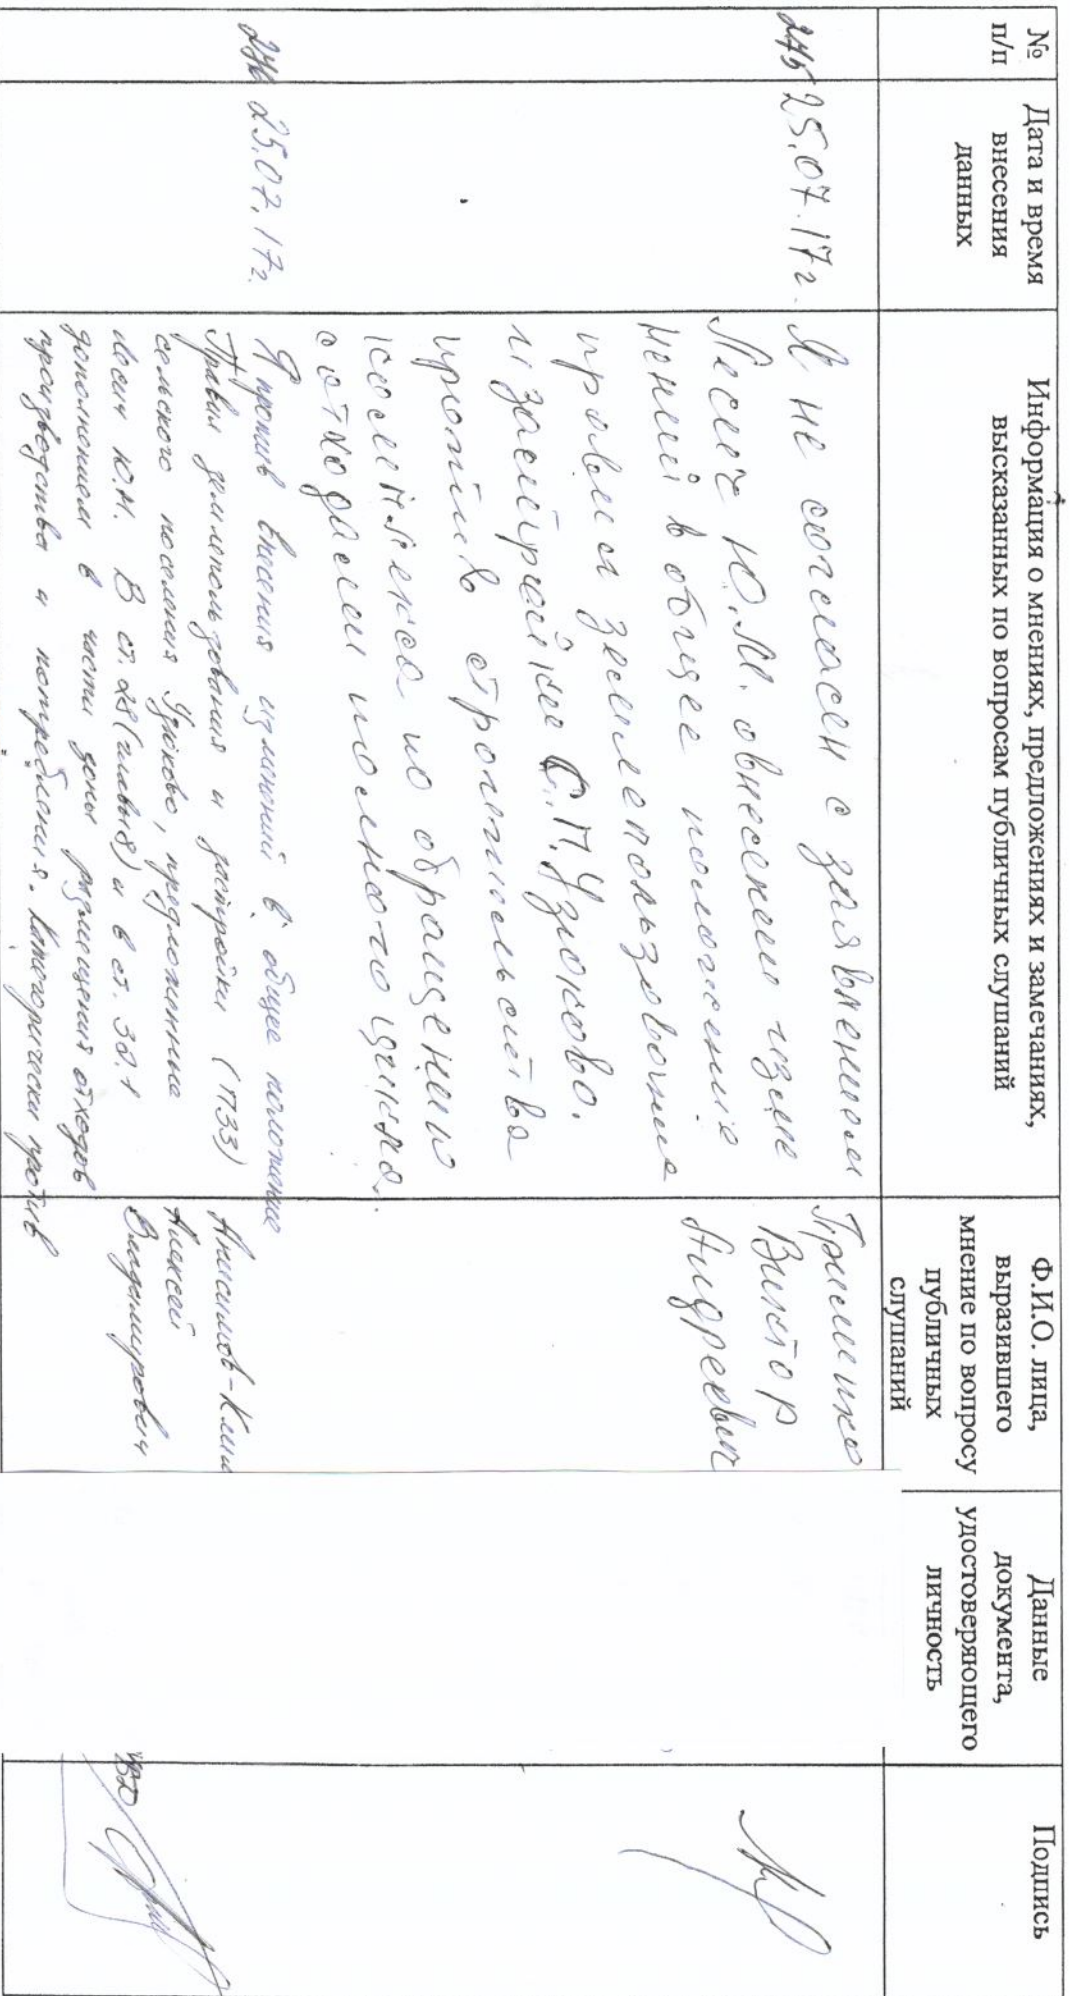 № п/п
Дата и время внесения данных
Информация о мнениях, предложениях и замечаниях, высказанных по вопросам публичных слушаний
Ф.И.О. лица, выразившего мнение по вопросу публичных слушаний
Данные документа, удостоверяющего личность
Подпись
245
25.07.17г.
Я, не согласен с заявлением
Лесик Ю.М. о внесении изме
нений в общее положение
правил землепользования
и застройки С.П. Узюково.
против строительства
комплекса по обращению
с отходами полного цикла.
Виктор
Андреевич
246
25.07.17г.
Я против внесения изменений в общее положение
Правил землепользования и застройки (ПЗЗ)
сельского поселения Узюково, предложенные
Лесик Ю.М. В ст. 28 (глава 8) и в ст. 32.1
дополнением в части зоны размещения отходов
производства и потребления. Категорически против
Алексей
Владимирович